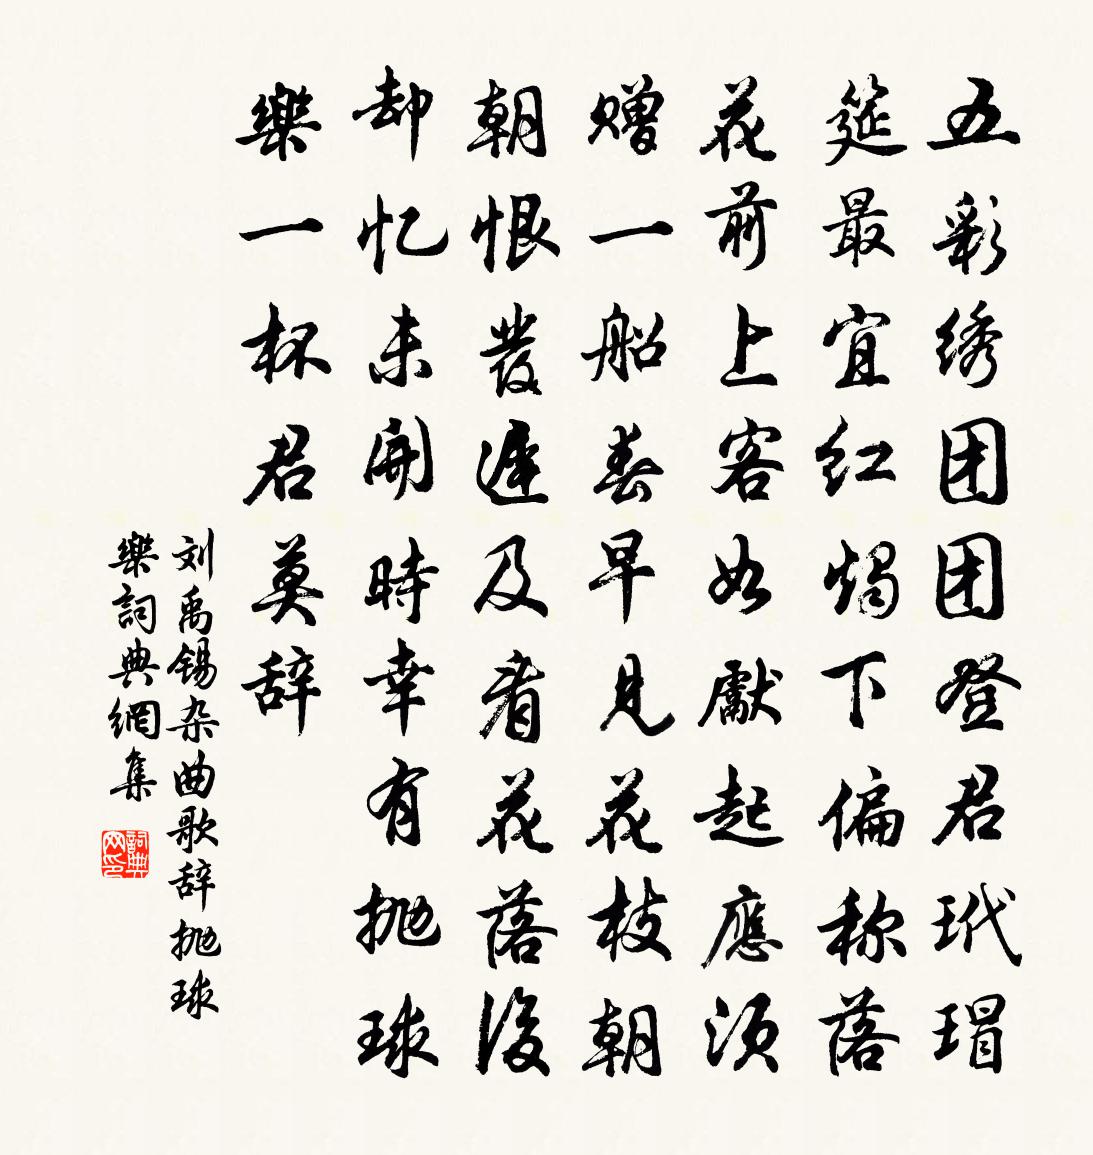 五彩绣团团登君玳瑁
筵最宜红烛下偏称落
花前上客如獻起應须
赠一船春早見花枝朝
朝恨發遲及看花落後
却忆未開時幸有抛球
樂一杯君莫辞
刘禹锡杂曲歌辞抛球
樂詞典網集
詞典网印